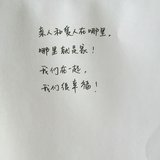 亲人和爱人在哪里,
哪里就是家!
我们在一起,
我们很幸福!